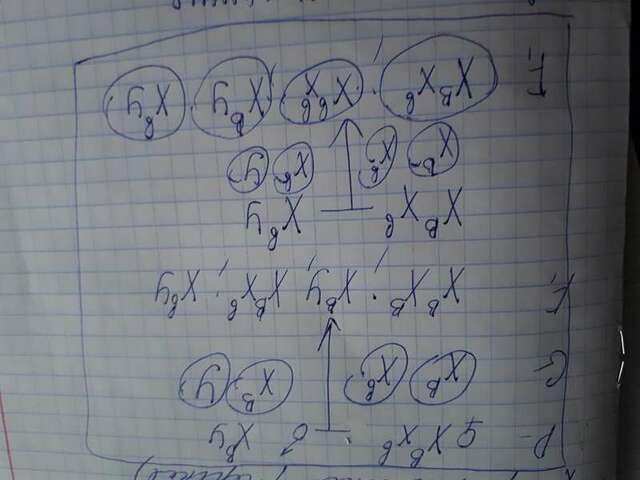 P- ♀ XᴮXᵇ ♂ Xᴮy
G Xᴮ, Xᵇ, Xᴮ, y,
F₁ XᴮXᴮ, Xᴮy, XᴮXᵇ, Xᵇy
XᴮXᵇ Xᵇy
Xᴮ, Xᵇ, Xᵇ, y,
F₁ XᴮXᵇ, XᵇXᵇ, Xᴮy, Xᵇy,